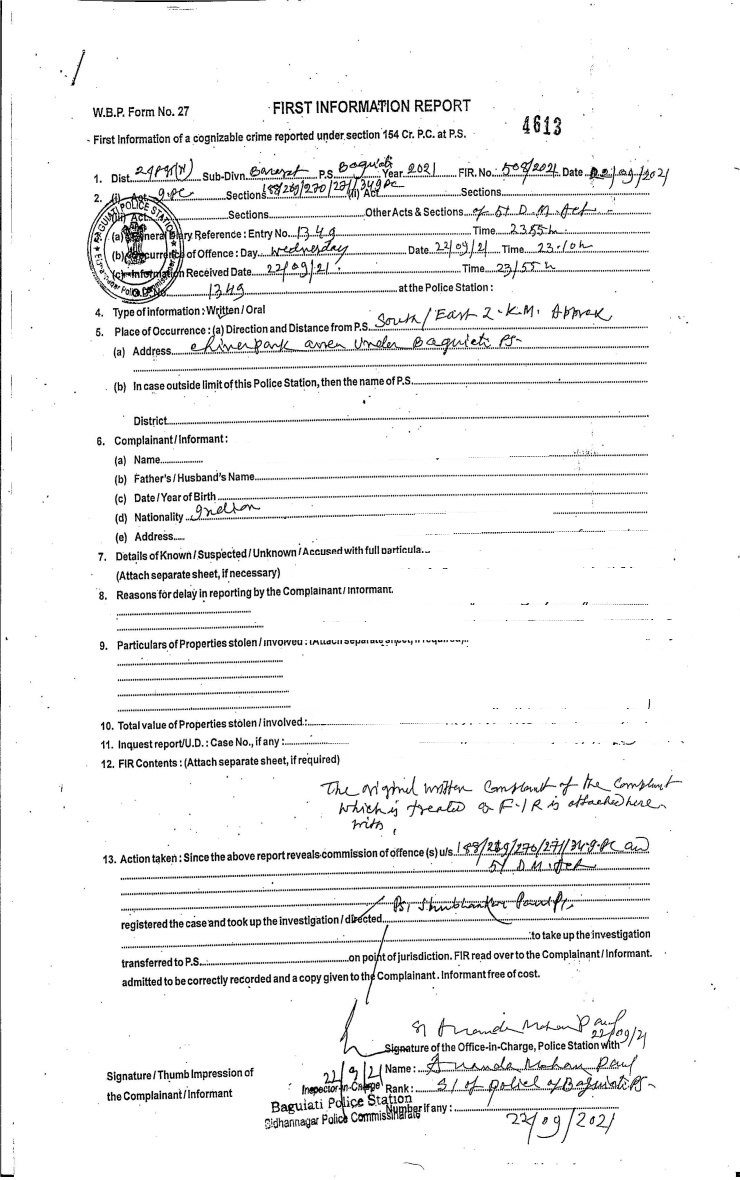 W.B.P. Form No. 27
FIRST INFORMATION REPORT
4613
First Information of a cognizable crime reported under section 154 Cr. P.C. at P.S.
1. Dist. 24PGS(N) Sub-Divn. Barasat P.S. Baguiati Year 2021 FIR. No. 508/2021 Date 22/09/2021
2. (i) Act IPC Sections 188/269/270/271/34 IPC (ii) Act Sections
(iii) Act Sections Other Acts & Sections 51 D.M. Act
(a) General Diary Reference : Entry No. 1349 Time 23.55 h
(b) Occurrence of Offence : Day Wednesday Date 22/09/21 Time 23.10 h
(c) Information Received Date 22/09/21. Time 23/55 h
1349 at the Police Station :
BAGUIATI POLICE STATION
4. Type of information : Written / Oral
5. Place of Occurrence : (a) Direction and Distance from P.S. South/East 2 K.M. Approx
(a) Address Chinerpark area under Baguiati PS-
(b) In case outside limit of this Police Station, then the name of P.S.
District
6. Complainant / Informant :
(a) Name
(b) Father's / Husband's Name
(c) Date / Year of Birth
(d) Nationality Indian
(e) Address
7. Details of Known / Suspected / Unknown / Accused with full particula...
(Attach separate sheet, if necessary)
8. Reasons for delay in reporting by the Complainant / Informant.
9. Particulars of Properties stolen / involved : (Attach separate sheet, if required).
10. Total value of Properties stolen / involved.:
11. Inquest report/U.D. : Case No., if any :
12. FIR Contents : (Attach separate sheet, if required)
The original written Complaint of the Complaint
which is treated as F-I R is attached here
with,
13. Action taken : Since the above report reveals commission of offence (s) u/s. 188/269/270/271/34 IPC and
51 D.M. Act
PSI Shubhankar
registered the case and took up the investigation / directed
to take up the investigation
transferred to P.S. on point of jurisdiction. FIR read over to the Complainant / Informant.
admitted to be correctly recorded and a copy given to the Complainant. Informant free of cost.
SI Ananda Mohan Paul
22/09/21
Signature of the Office-in-Charge, Police Station with
Signature / Thumb Impression of
the Complainant / Informant
22/9/21
Inspector-in-Charge
Baguiati Police Station
Bidhannagar Police Commissinarate
Name : Ananda Mohan Paul
Rank : S/I of police of Baguiati PS-
Number if any :
22/09/2021